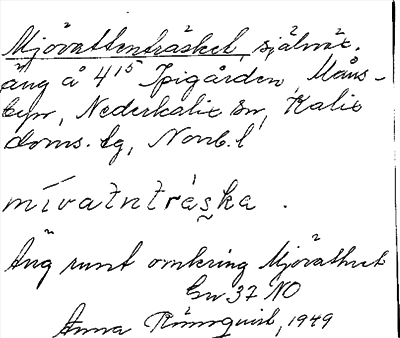 Mjövattenträsket, själväx.
äng å 4¹⁵ Ipigården, Måns-
byn, Nederkalix sn, Kalix
doms. lg, Norrb. l
mívatntràska.
Äng runt omkring Mjövattnet
Gw 37 NO
Anna Rönnquist, 1949